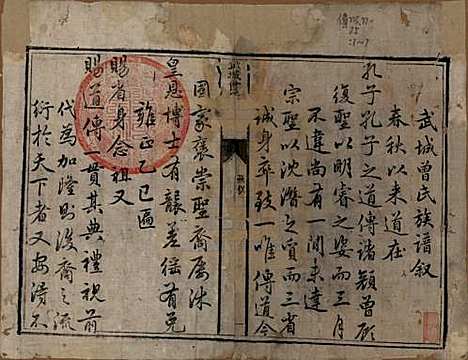 武城曾氏族譜叙
春秋以来道在
孔子孔子之道傳諸顏曾顧
復聖以明睿之姿而三月
不違尚有一間未達
宗聖以沈潛之質而三省
誠身卒致一唯傳道今
國家褒崇聖裔屢沐
皇恩博士有襲差徭有免
雍正乙巳匾
賜省身念祖又
賜道傳一貫其典禮視前
代為加隆則後裔之流
衍於天下者又安淂不